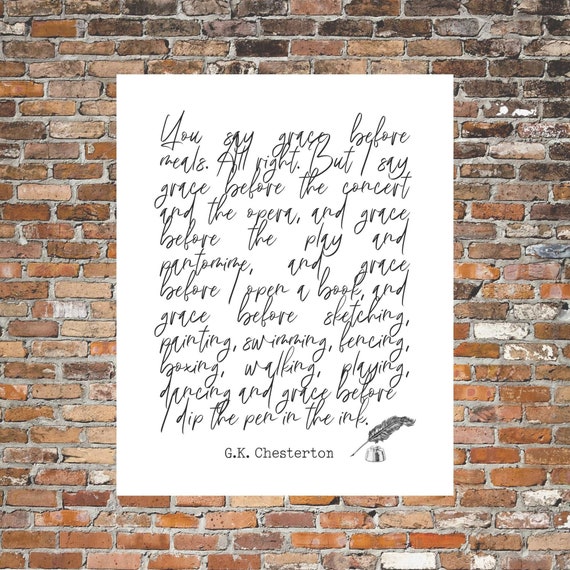 You say grace before
meals. All right. But I say
grace before the concert
and the opera, and grace
before the play and
pantomime, and grace
before I open a book, and
grace before sketching,
painting, swimming, fencing,
boxing, walking, playing,
dancing and grace before
I dip the pen in the ink.
G.K. Chesterton